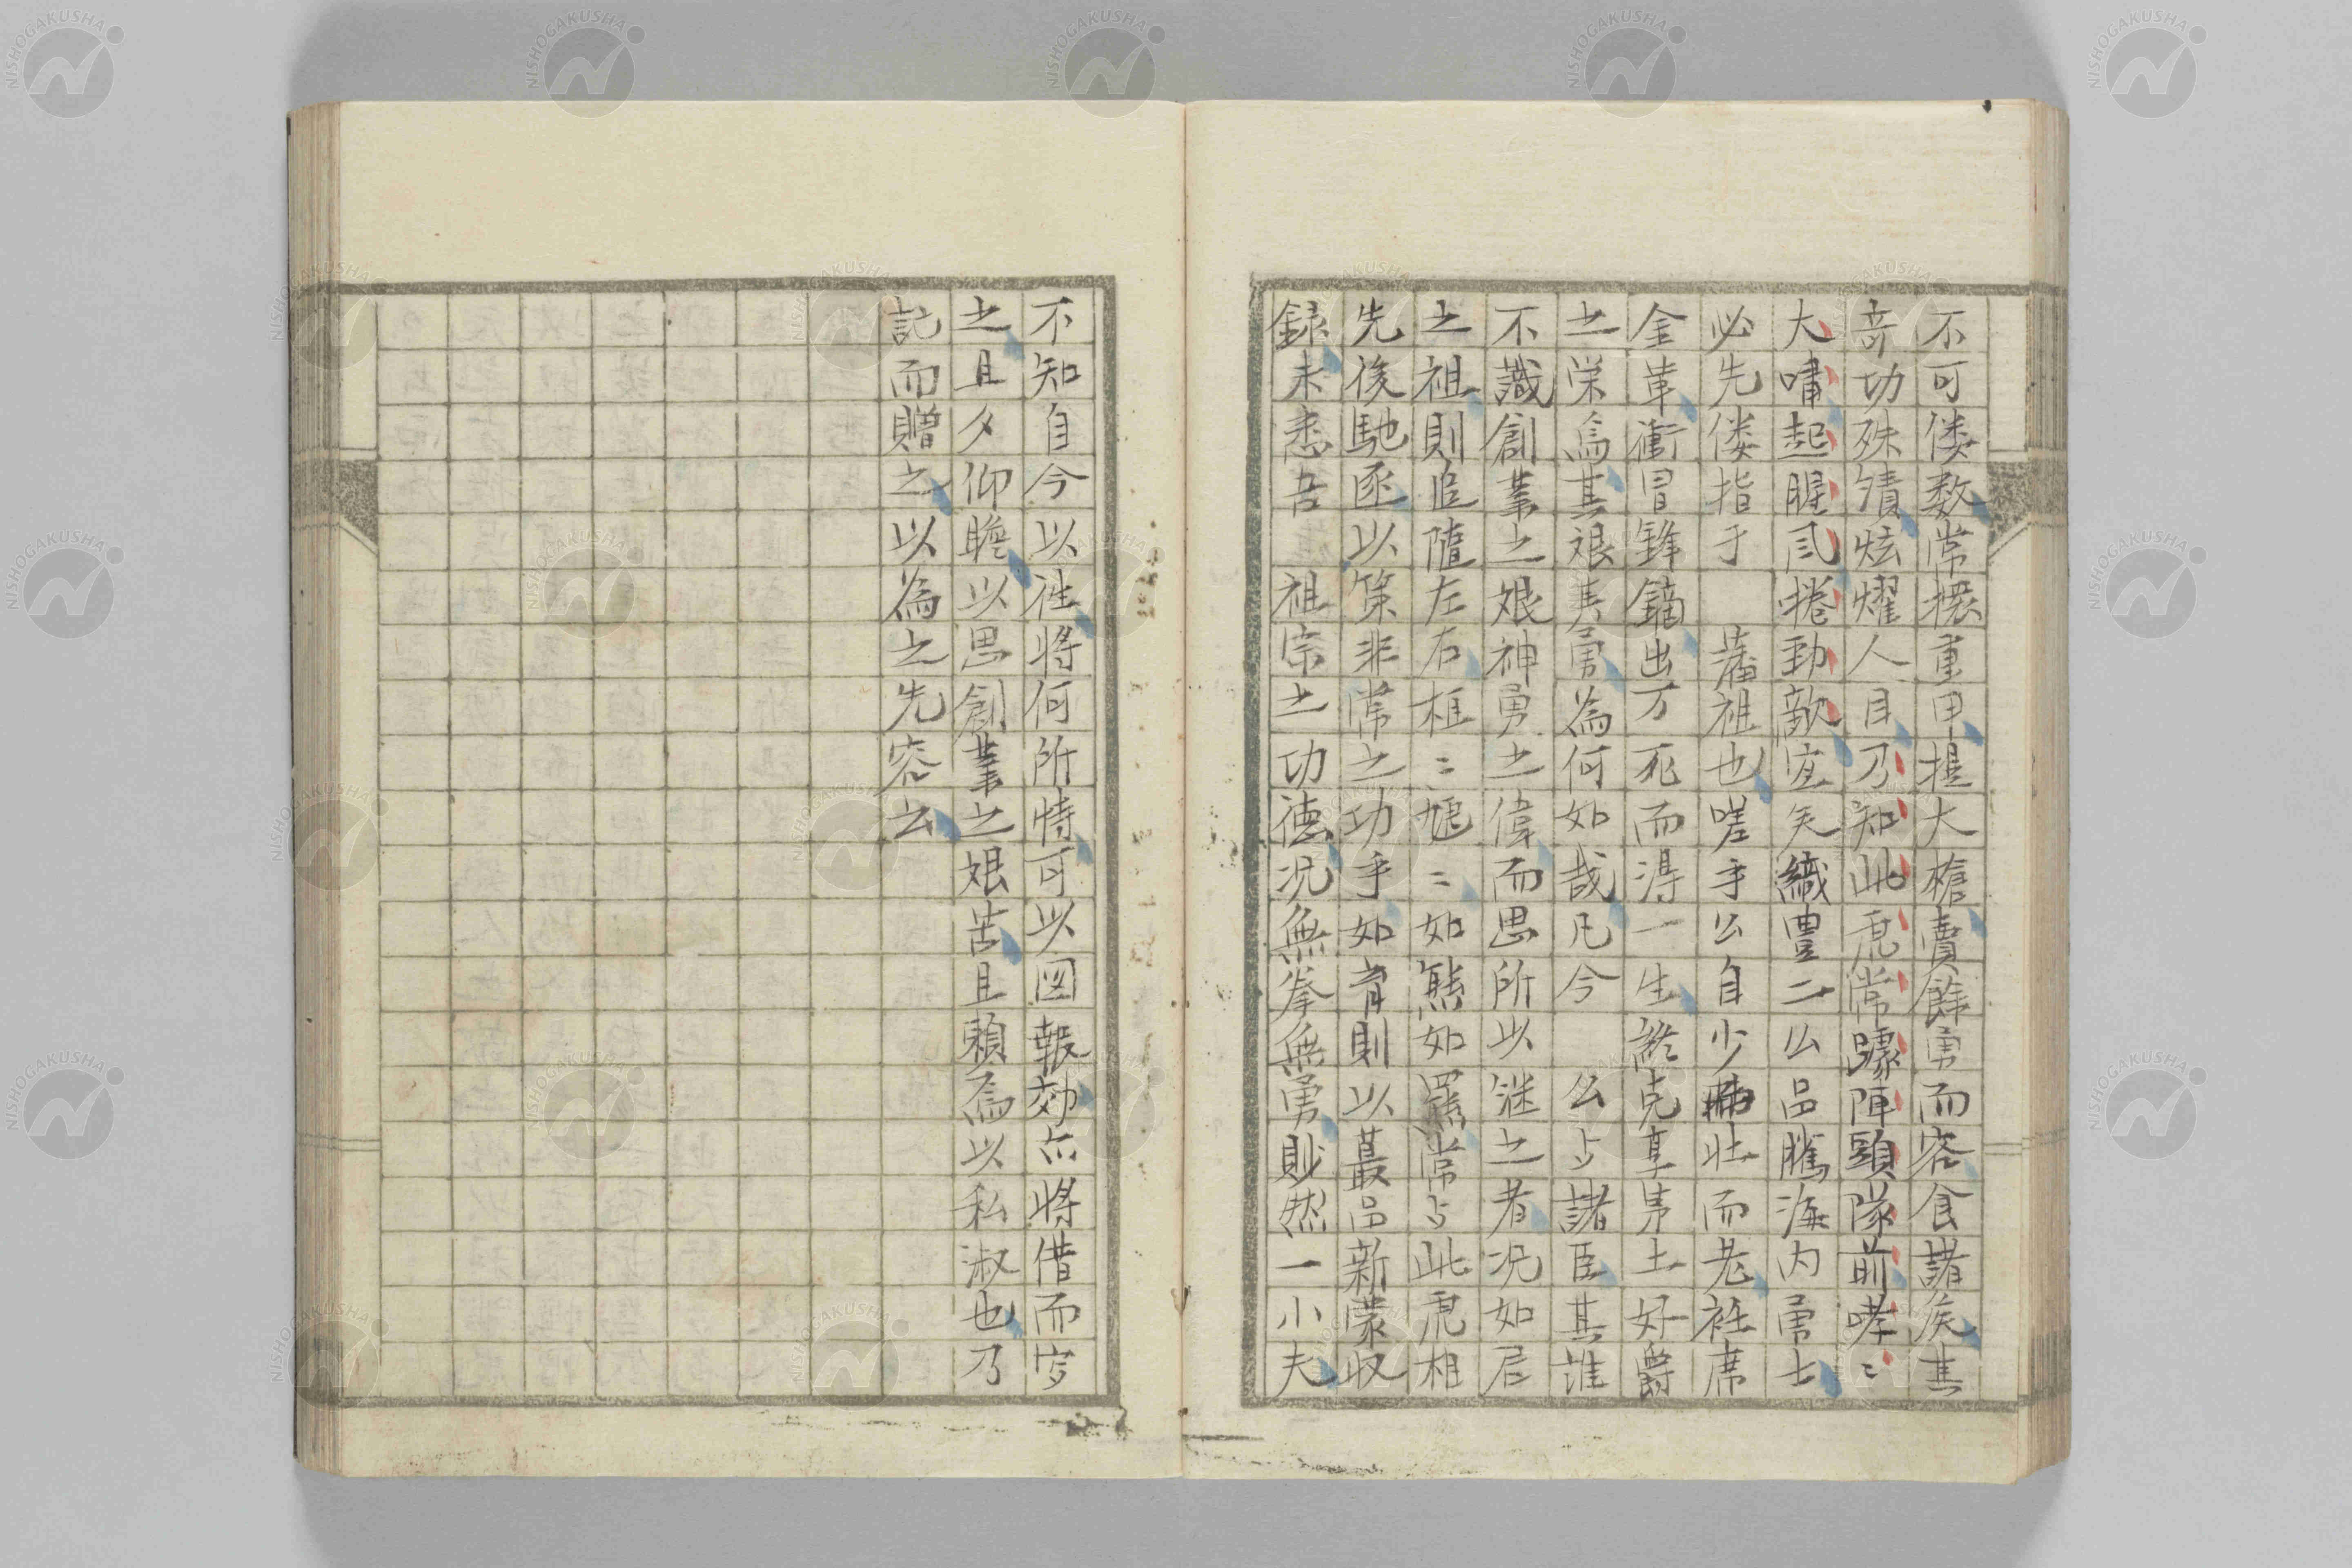 不可僂数常擐重甲提大槍賣餘勇而容食諸侯其
奇功殊績炫耀人目乃知此虎常躍陣頭隊前哮〻
大嘯起腥風捲勁敵宜矣織豊二公品騰海内勇士
必先僂指于 藩祖也嗟乎公自少壮而老衽席
金革衝冒鋒鏑出万死而得一生終克享茅土好爵
之栄為其艱其勇為何如哉凡今 公与諸臣其誰
不識創業之艱神勇之偉而思所以継之者况如君
之祖則追随左右桓〻尯〻如熊如羆常与此虎相
先後馳逐以策非常之功乎如育則以蕞品新蒙収
録未悉吾 祖宗之功徳况無拳無勇眇然一小夫
不知自今以往将何所恃可以図報効亦将借而写
之且夕仰瞻以思創業之艱苦且頼為以私淑也乃
記而贈之以為之先容云
NISHOGAKUSHA